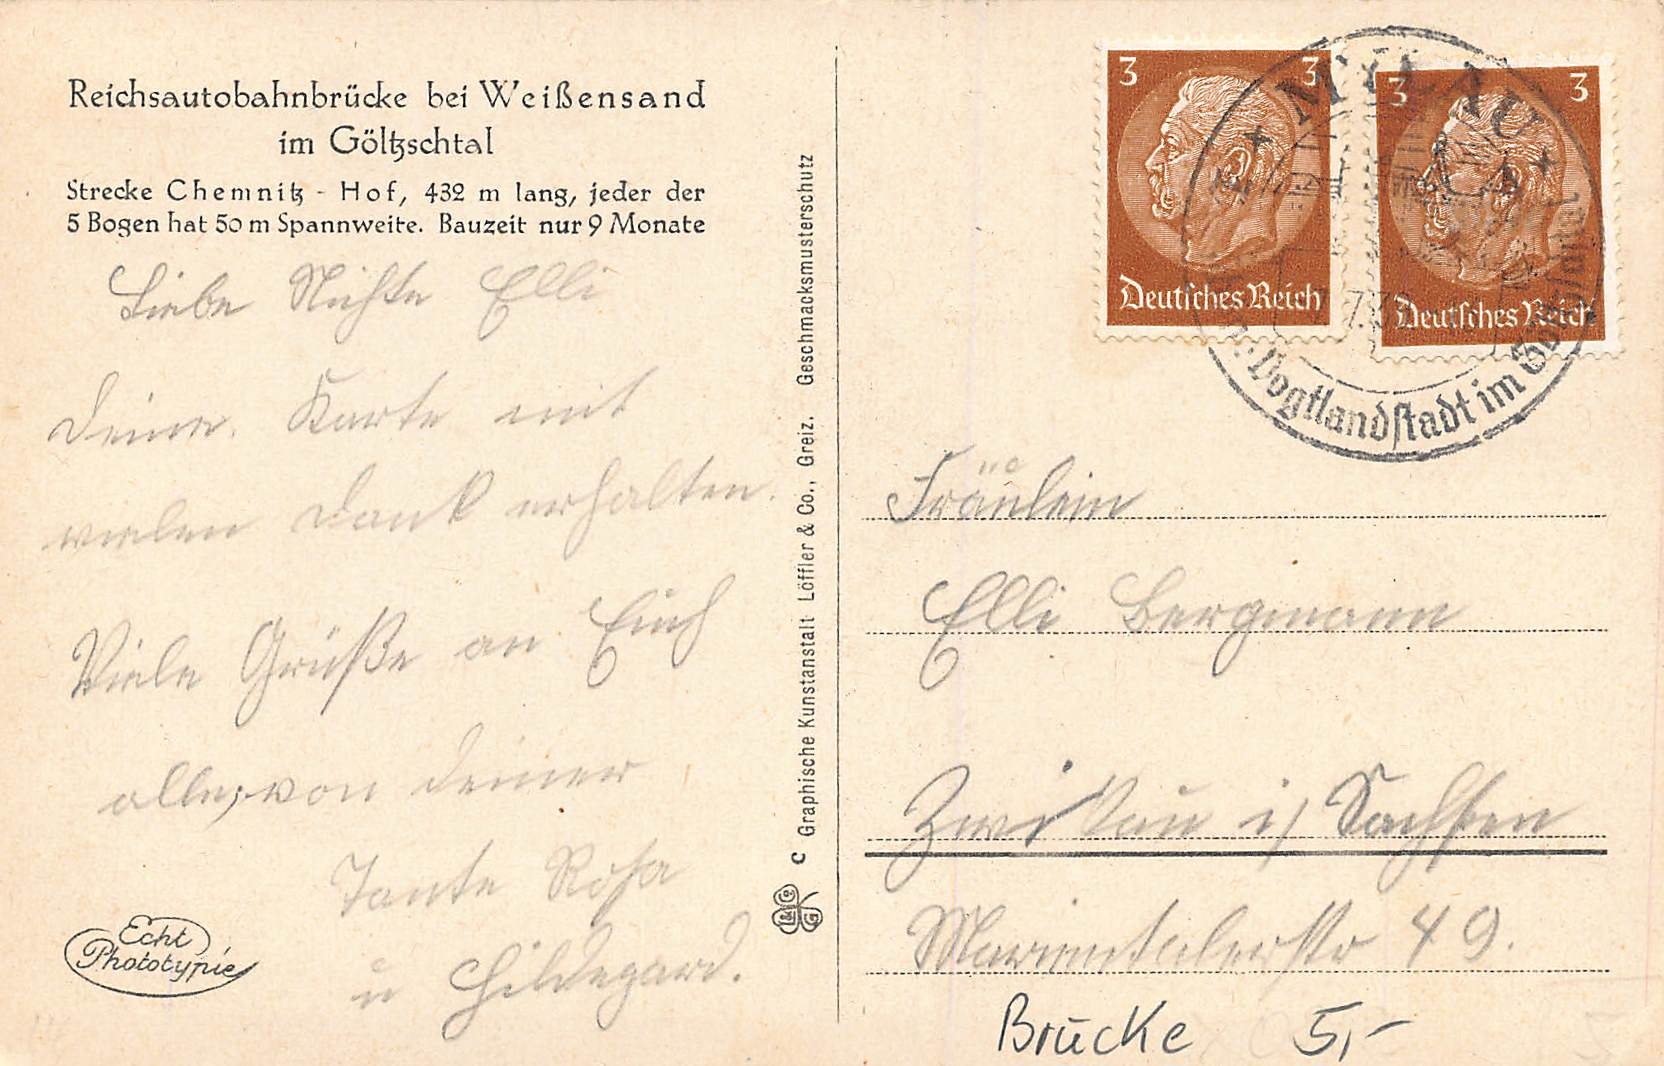 Reichsautobahnbrücke bei Weißensand
im Göltzschtal
Strecke Chemnitz - Hof, 432 m lang, jeder der
5 Bogen hat 50 m Spannweite. Bauzeit nur 9 Monate
Liebe Nichte Elli
Deine Karte mit
vielen Dank erhalten.
Viele Grüße an Euch
alle, von deiner
Tante Rosa
u Hildegard.
Echt
Phototypie
C Graphische Kunstanstalt Löffler & Co., Greiz. Geschmacksmusterschutz
L & Co G
3 3
Deutsches Reich
3 3
Deutsches Reich
MYLAU
Vogtlandstadt im Göltzschtal
Fräulein
Elli Bergmann
Zwikau i/ Sachsen
Marientalerstr 49.
Brücke 5,-